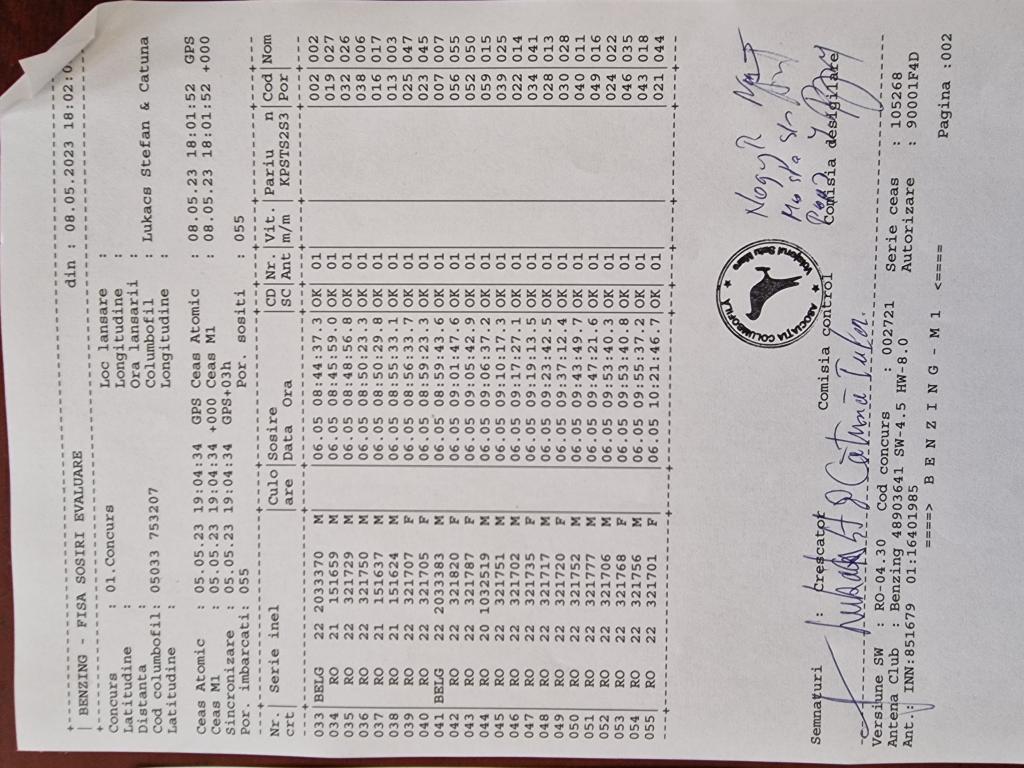 BENZING - FISA SOSIRI EVALUARE din : 08.05.2023 18:02:0
Concurs : 01.Concurs Loc lansare :
Latitudine : Longitudine :
Distanta : Ora lansarii :
Cod columbofil: 05033 753207 Columbofil : Lukacs Stefan & Catuna
Latitudine : Longitudine :
Ceas Atomic : 05.05.23 19:04:34 GPS Ceas Atomic : 08.05.23 18:01:52 GPS
Ceas M1 : 05.05.23 19:04:34 +000 Ceas M1 : 08.05.23 18:01:52 +000
Sincronizare : 05.05.23 19:04:34 GPS+03h
Por. imbarcati: 055 Por. sositi : 055
Nr | Serie inel |Culo|Sosire |CD|Nr.|Vit.|Pariu n|Cod|Nom
crt| |are |Data Ora |SC|Ant|m/m |KPSTS2S3|Por|
033|BELG 22 2033370 M| |06.05 08:44:37.3|OK| 01| | |002|002
034| RO 21 151659 M| |06.05 08:45:59.0|OK| 01| | |019|027
035| RO 22 321729 M| |06.05 08:48:56.8|OK| 01| | |032|026
036| RO 22 321750 M| |06.05 08:50:23.3|OK| 01| | |038|006
037| RO 21 151637 M| |06.05 08:50:29.8|OK| 01| | |016|017
038| RO 21 151624 M| |06.05 08:55:33.1|OK| 01| | |013|003
039| RO 22 321707 F| |06.05 08:56:33.7|OK| 01| | |025|047
040| RO 22 321705 F| |06.05 08:59:23.3|OK| 01| | |023|045
041|BELG 22 2033383 M| |06.05 08:59:43.6|OK| 01| | |007|007
042| RO 22 321820 F| |06.05 09:01:47.6|OK| 01| | |056|055
043| RO 22 321787 F| |06.05 09:05:42.9|OK| 01| | |052|050
044| RO 20 1032519 M| |06.05 09:06:37.2|OK| 01| | |059|015
045| RO 22 321751 M| |06.05 09:10:17.3|OK| 01| | |039|025
046| RO 22 321702 M| |06.05 09:17:27.1|OK| 01| | |022|014
047| RO 22 321735 F| |06.05 09:19:13.5|OK| 01| | |034|041
048| RO 22 321717 M| |06.05 09:23:42.5|OK| 01| | |028|013
049| RO 22 321720 F| |06.05 09:37:12.4|OK| 01| | |030|028
050| RO 22 321752 M| |06.05 09:43:49.7|OK| 01| | |040|011
051| RO 22 321777 M| |06.05 09:47:21.6|OK| 01| | |049|016
052| RO 22 321706 M| |06.05 09:53:40.3|OK| 01| | |024|022
053| RO 22 321768 F| |06.05 09:53:40.8|OK| 01| | |046|035
054| RO 22 321756 M| |06.05 09:55:37.2|OK| 01| | |043|018
055| RO 22 321701 F| |06.05 10:21:46.7|OK| 01| | |021|044
ASOCIATIA COLUMBOFILA
Voiajorul Satu Mare
Semnaturi : Crescator Comisia control Comisia desigilare
Versiune SW : RO-04.30 Cod concurs : 002721 Serie ceas : 105268
Antena Club : Benzing 48903641 SW-4.5 HW-8.0 Autorizare : 90001F4D
Ant.: INN:851679 01:16401985
====> B E N Z I N G - M 1 <==== Pagina :002